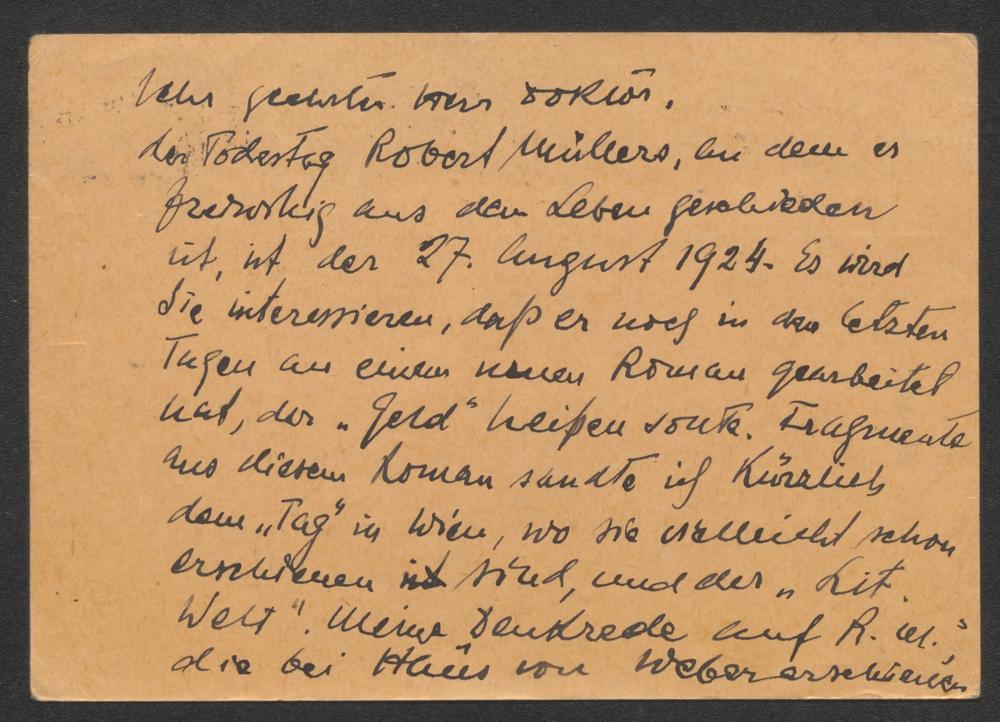 Sehr geehrter Herr Doktor,
der Todestag Robert Müllers, an dem er
freiwillig aus dem Leben geschieden
ist, ist der 27. August 1924. Es wird
Sie interessieren, daß er noch in den letzten
Tagen an einem neuen Roman gearbeitet
hat, der „Geld" heißen sollte. Fragmente
aus diesem Roman sandte ich kürzlich
dem „Tag" in Wien, wo sie vielleicht schon
erschienen ist sind, und der „Lit.
Welt". Meine Denkrede auf R. M.,
die bei Haus von Weber erschienen